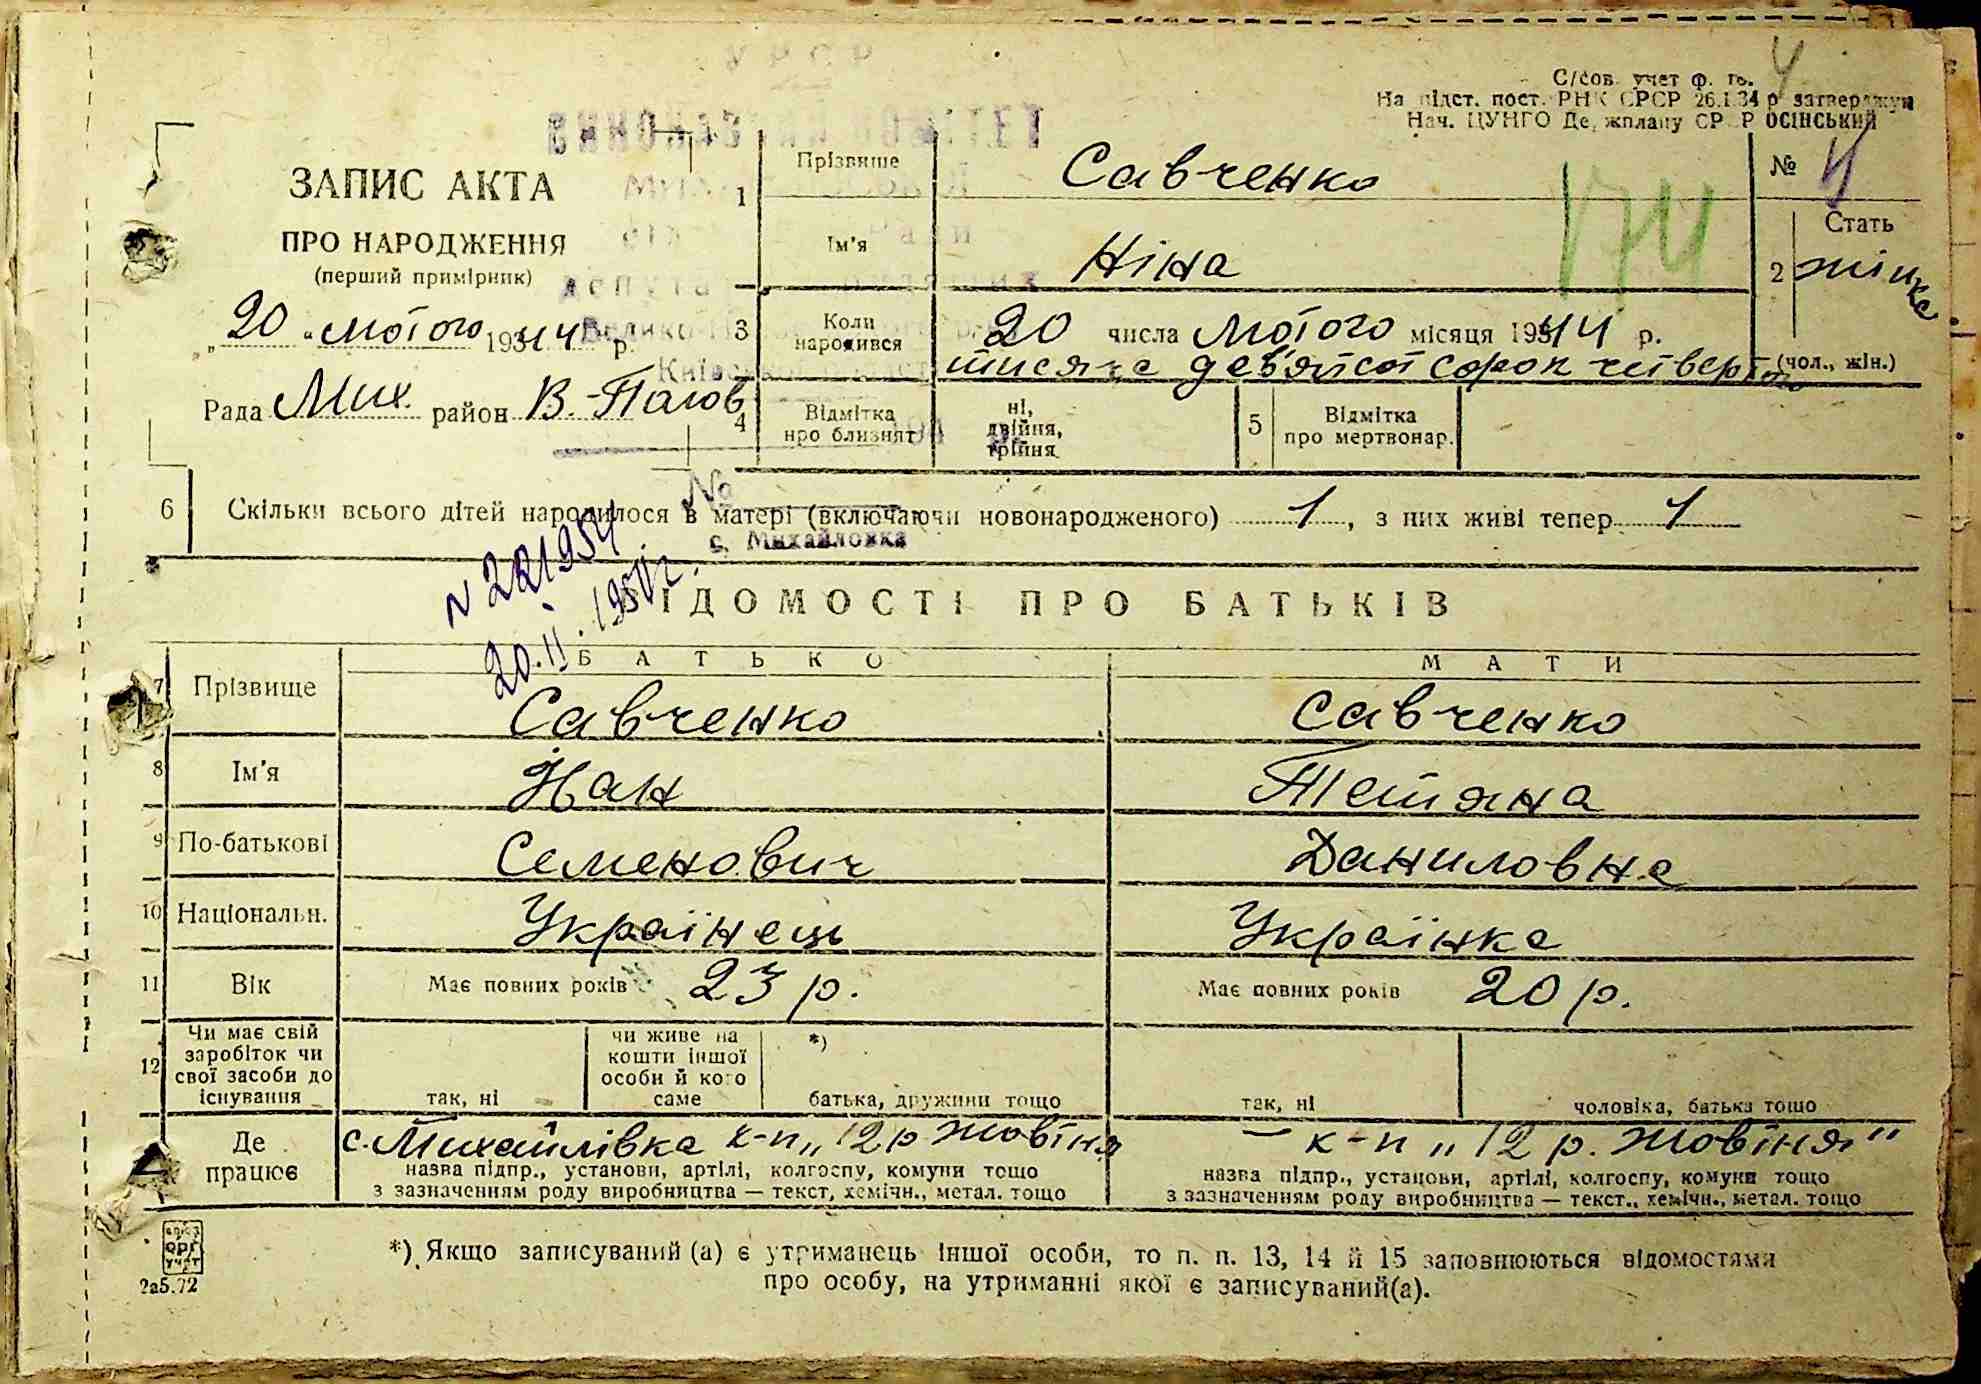 У Р С Р
4
С/сов. учет ф.
На підст. пост. РНК СРСР 26.1.34 р затверджую
Нач. ЦУНГО Держплану СРСР ОСІНСЬКИЙ
ЗАПИС АКТА
ПРО НАРОДЖЕННЯ
(перший примірник)
„20“ лютого 1944 р.
Рада Мих. район В.-Полов
1 Прізвище Савченко
Ім'я Ніна
174
№ 4
2 Стать жінка
(чол., жін.)
3 Коли народився 20 числа лютого місяця 1944 р.
тисяча дев'ятсот сорок четвертого
4 Відмітка про близнят ні, двійня, трійня
5 Відмітка про мертвонар.
6 Скільки всього дітей народилося в матері (включаючи новонародженого) 1, з них живі тепер 1
№
с. Михайловка
20.II.
ВІДОМОСТІ ПРО БАТЬКІВ
БАТЬКО МАТИ
7 Прізвище Савченко Савченко
8 Ім'я Йан Тетяна
9 По-батькові Семенович Даниловна
10 Національн. Українець Українка
11 Вік Має повних років 23 р. Має повних років 20 р.
12 Чи має свій заробіток чи свої засоби до існування так, ні чи живе на кошти іншої особи й кого саме *) батька, дружини тощо так, ні чоловіка, батька тощо
Де працює с. Михайлівка к-п „12 р Жовтня – к-п „12 р. Жовтня"
назва підпр., установи, артілі, колгоспу, комуни тощо назва підпр., установи, артілі, колгоспу, комуни тощо
з зазначенням роду виробництва — текст, хемічн., метал. тощо з зазначенням роду виробництва — текст., хемічн., метал. тощо
союз
орг
учет
2а5.72
*) Якщо записуваний (а) є утриманець іншої особи, то п. п. 13, 14 й 15 заповнюються відомостями
про особу, на утриманні якої є записуваний(а).